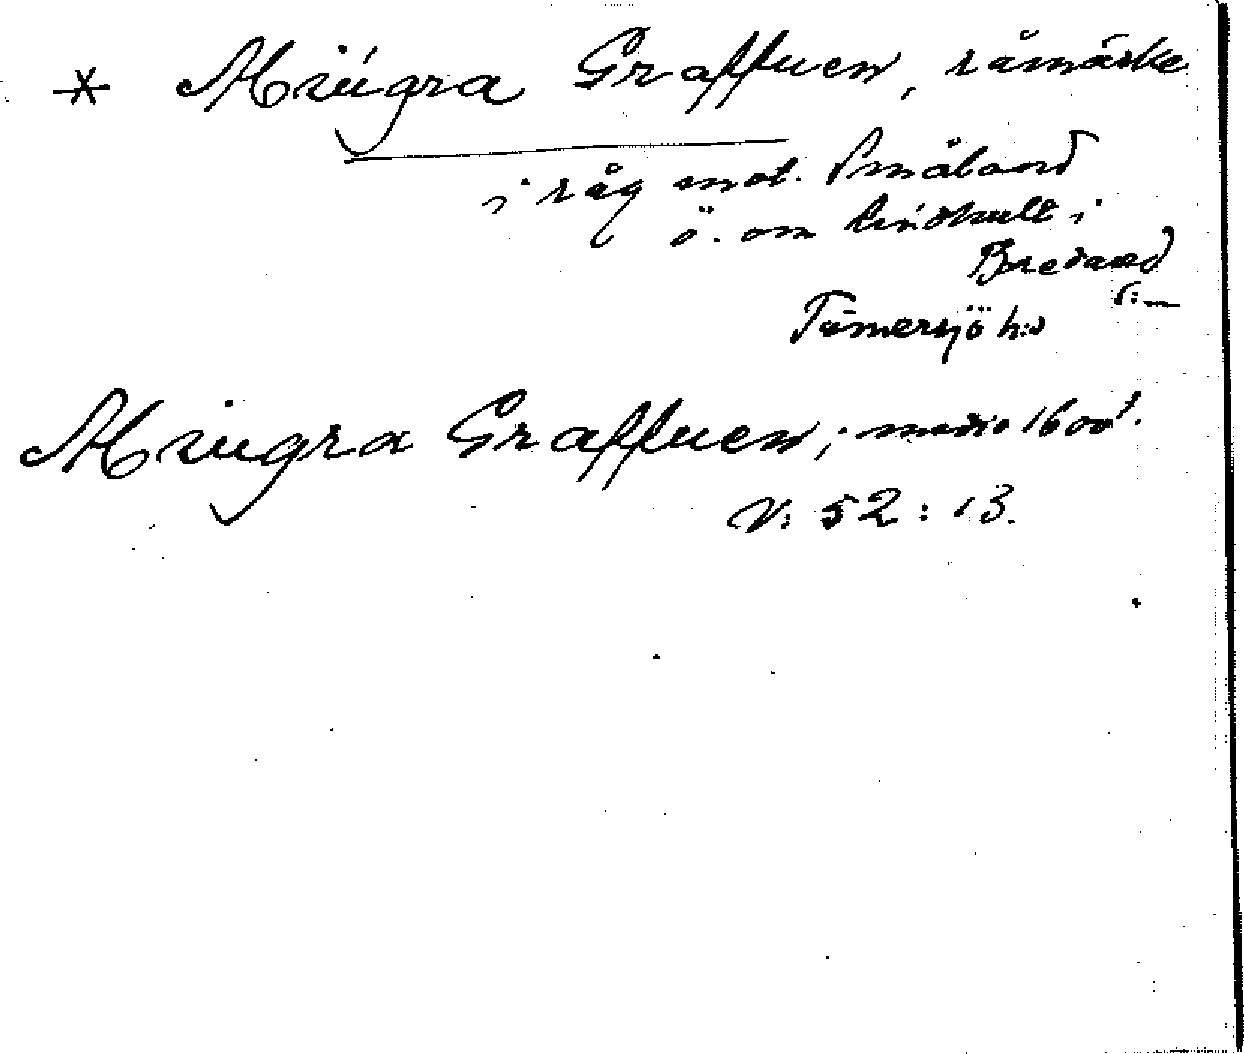 * Miugra Graffuen, råmärke
i råg mot. Småland
ö. om Lindhult i
Bredared
s:n
Tömersjö h:d
Miugra Graffuen; medio 1600t.
V: 52: 13.